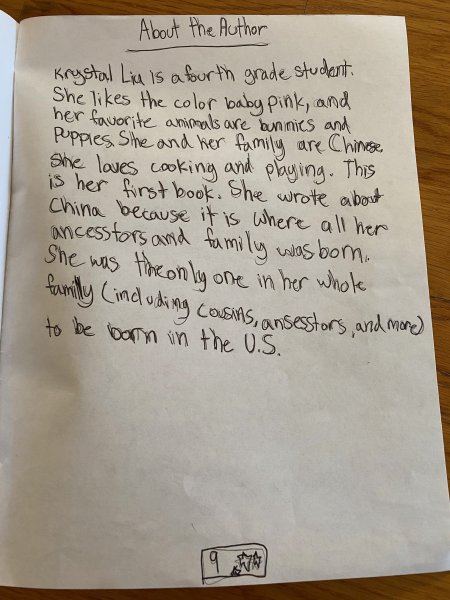 About the Author
Krystal Liu is a fourth grade student.
She likes the color baby pink, and
her favorite animals are bunnies and
puppies. She and her family are Chinese.
She loves cooking and playing. This
is her first book. She wrote about
China because it is where all her
ancesstors and family was born.
She was the only one in her whole
family (including cousins, ansesstors, and more)
to be born in the U.S.
9